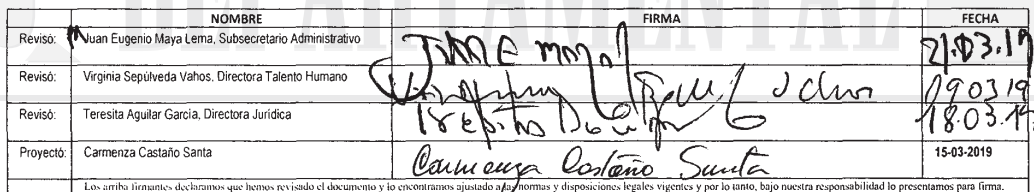 DEPARTAMENTAL
NOMBRE FIRMA FECHA
Revisó: Juan Eugenio Maya Lema, Subsecretario Administrativo 21.03.19
Revisó: Virginia Sepúlveda Vahos, Directora Talento Humano 190319
Revisó: Teresita Aguilar García, Directora Jurídica 18.03.19
Proyectó: Carmenza Castaño Santa Carmenza Castaño Santa 15-03-2019
Los arriba firmantes declaramos que hemos revisado el documento y lo encontramos ajustado a las normas y disposiciones legales vigentes y por lo tanto, bajo nuestra responsabilidad lo presentamos para firma.